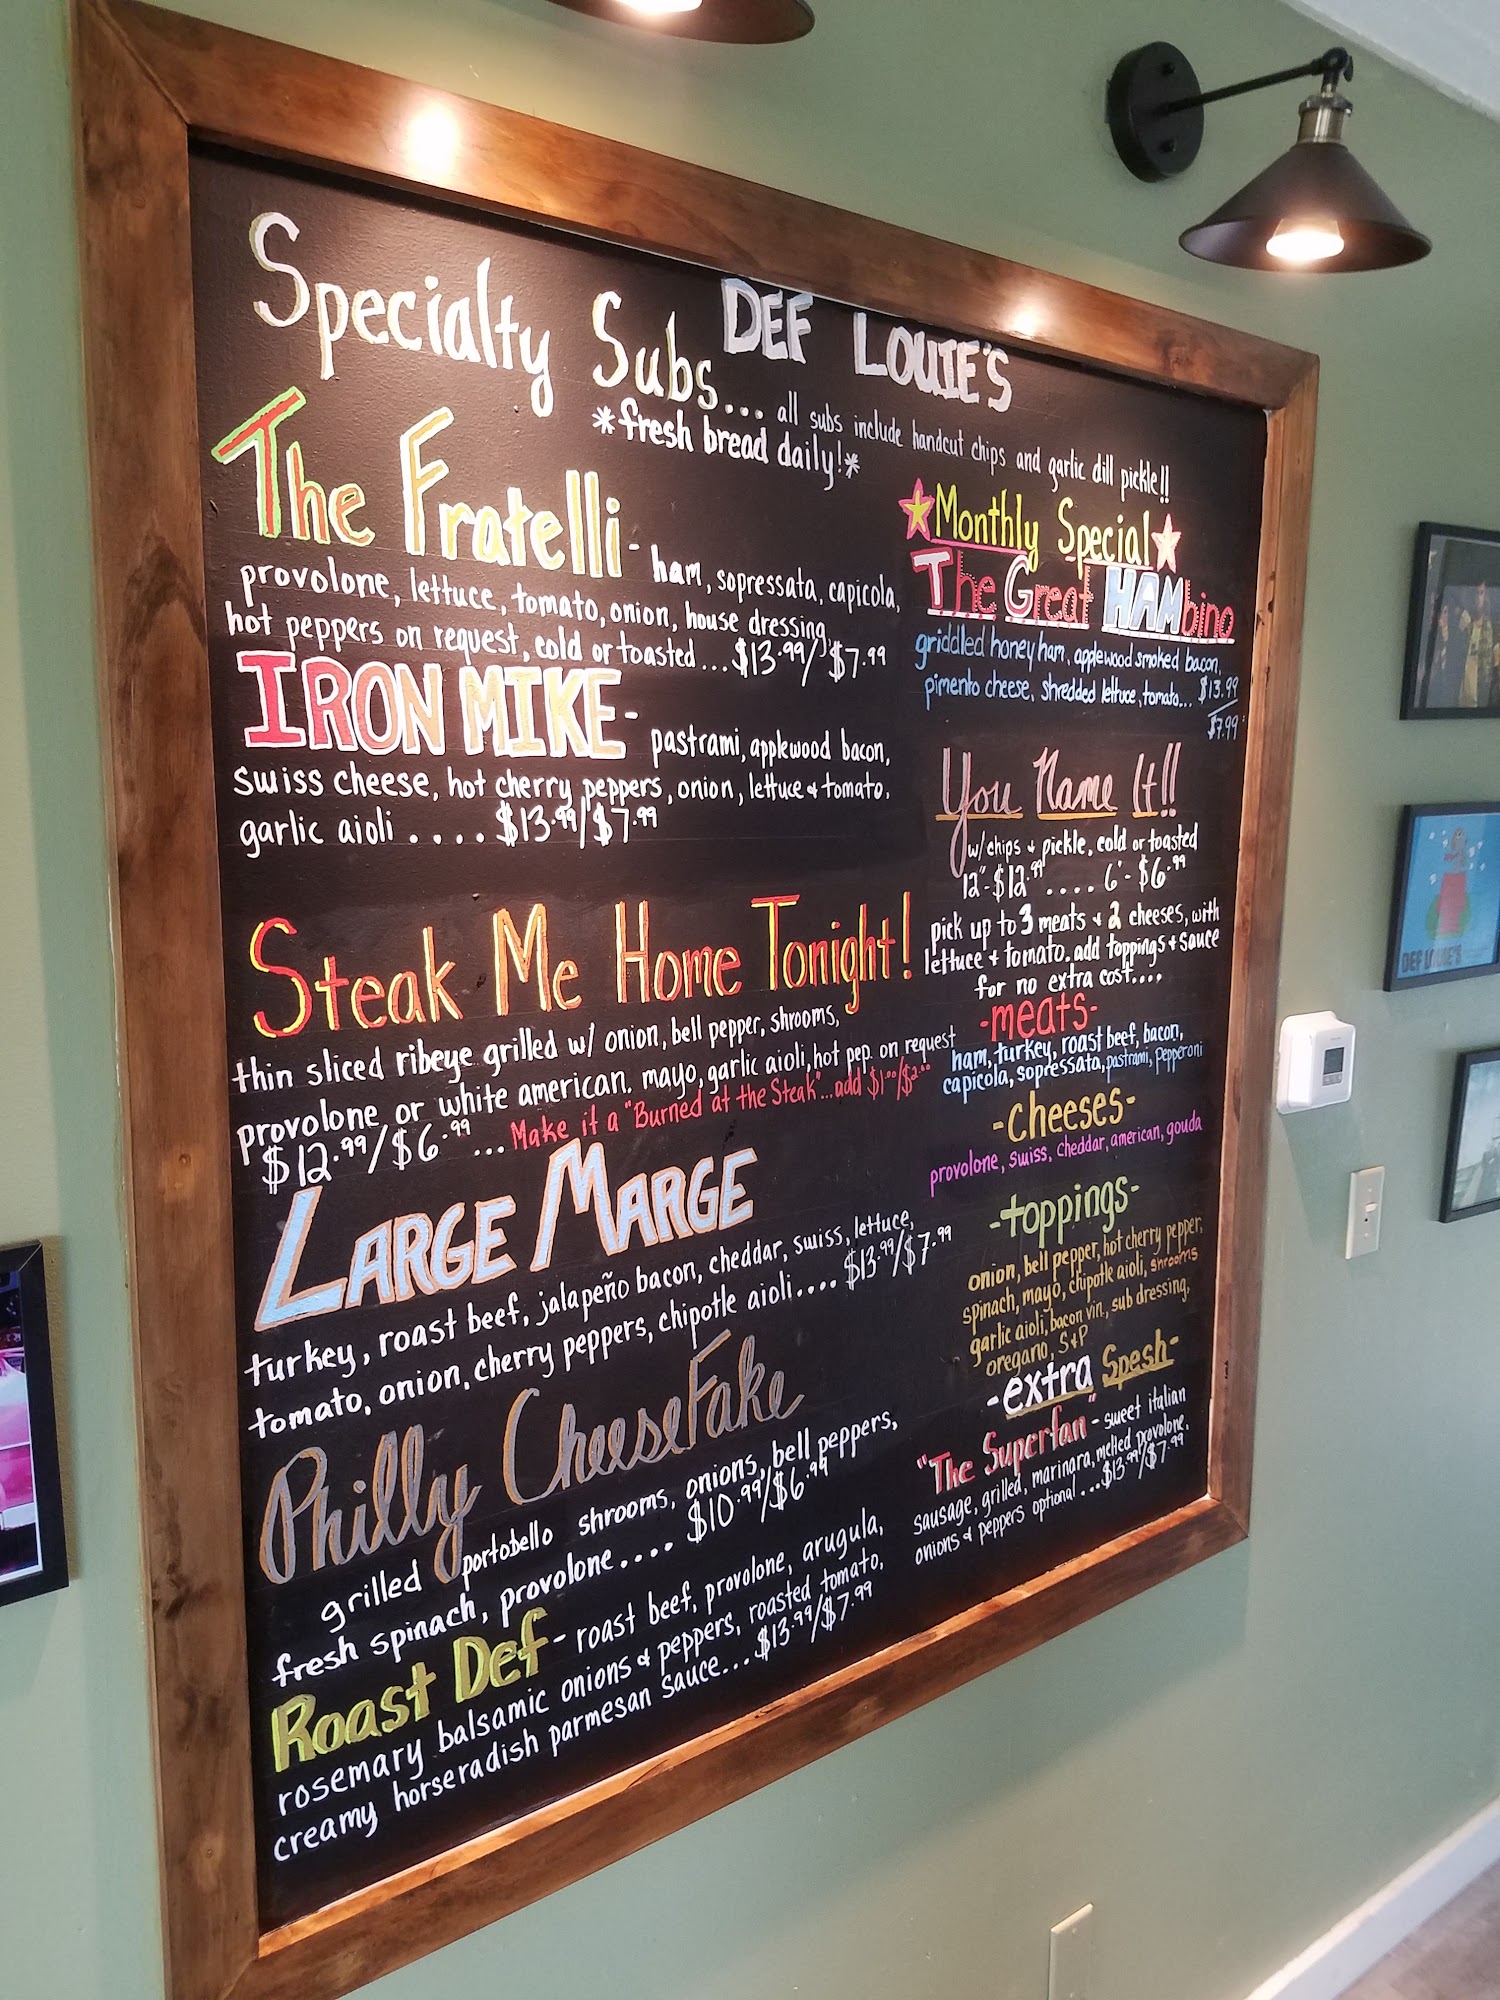 Specialty Subs...
DEF LOUIE'S
all subs include handcut chips and garlic dill pickle!!
*fresh bread daily!*
The Fratelli - ham, sopressata, capicola,
provolone, lettuce, tomato, onion, house dressing,
hot peppers on request, cold or toasted... $13.99/$7.99
IRON MIKE - pastrami, applewood bacon,
swiss cheese, hot cherry peppers, onion, lettuce + tomato,
garlic aioli .... $13.99/$7.99
Steak Me Home Tonight!
thin sliced ribeye grilled w/ onion, bell pepper, shrooms,
provolone or white american. mayo, garlic aioli, hot pep. on request
$12.99/$6.99 ... Make it a "Burned at the Steak"...add $1.00/$2.00
LARGE MARGE
turkey, roast beef, jalapeño bacon, cheddar, swiss, lettuce,
tomato, onion, cherry peppers, chipotle aioli.... $13.99/$7.99
Philly CheeseFake
grilled portobello shrooms, onions, bell peppers,
fresh spinach, provolone.... $10.99/$6.99
Roast Def - roast beef, provolone, arugula,
rosemary balsamic onions & peppers, roasted tomato,
creamy horseradish parmesan sauce... $13.99/$7.99
Monthly Special
The Great HAMbino
griddled honey ham, applewood smoked bacon,
pimento cheese, shredded lettuce, tomato... $13.99
/$7.99
You Name It!!
w/chips + pickle, cold or toasted
12"-$12.99 .... 6"-$6.99
pick up to 3 meats + 2 cheeses, with
lettuce + tomato. add toppings + sauce
for no extra cost....
-meats-
ham, turkey, roast beef, bacon,
capicola, sopressata, pastrami, pepperoni
-cheeses-
provolone, swiss, cheddar, american, gouda
-toppings-
onion, bell pepper, hot cherry pepper,
spinach, mayo, chipotle aioli, shrooms
garlic aioli, bacon vin., sub dressing,
oregano, S&P
-extra Spesh-
"The Superfan" - sweet italian
sausage, grilled, marinara, melted provolone,
onions & peppers optional ...$13.99/$7.99
DEF LOUIE'S